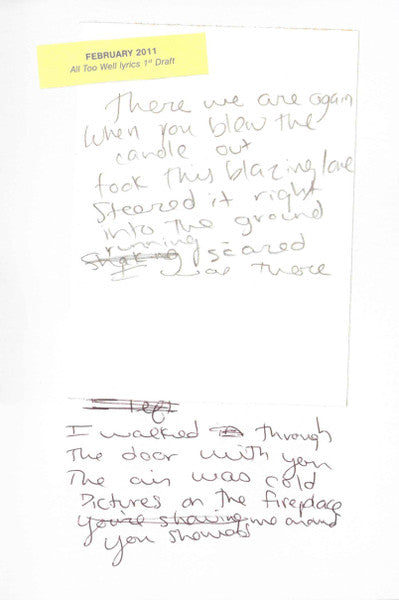 FEBRUARY 2011
All Too Well lyrics 1st Draft
There we are again
When you blew the
candle out
took this blazing love
Steered it right
into the ground
running
shaking scared
I was there
left
I walked through
The door with you
The air was cold
Pictures on the fireplace
you're showing me around
you showed